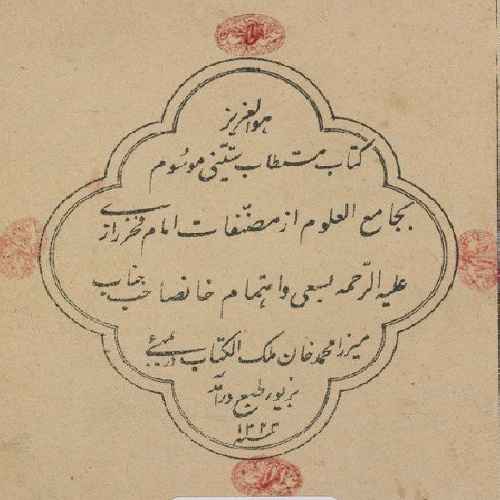 هو العزیز
کتاب مستطاب ستینی موسوم
بجامع العلوم از مصنفات امام فخر رازی
علیه الرحمه بسعی و اهتمام خانصاحب جناب
میرزا محمد خان ملک الکتاب در بمبئی
بزیور طبع درآمد
سنه ۱۳۲۳